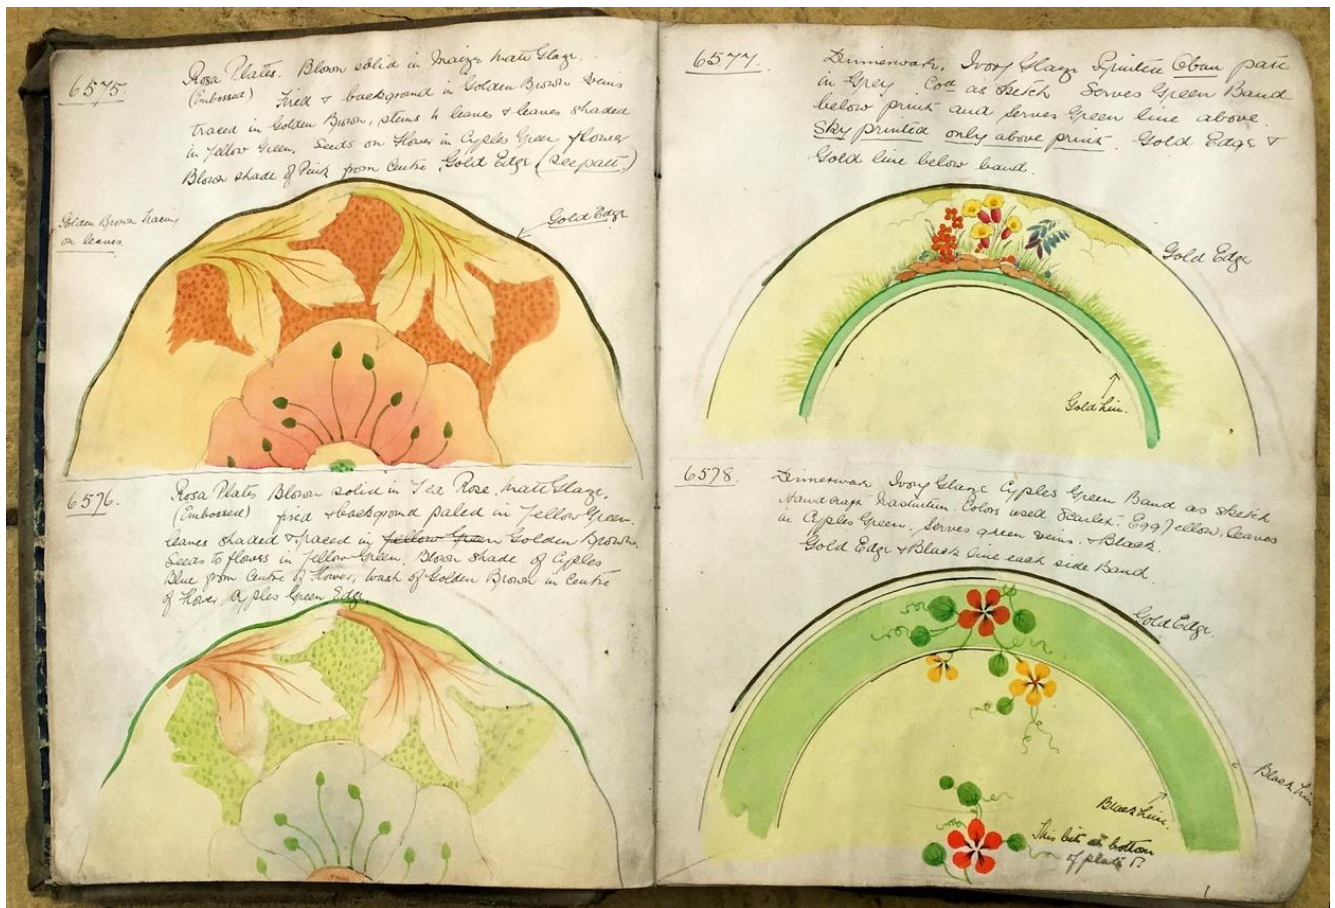 6575.
Rosa Plates. Blown solid in Maize Matt Glaze.
(Embossed) Fired & background in Golden Brown Veins
traced in Golden Brown, stems to leaves & leaves shaded
in Yellow Green. Seeds on flower in Cyples Green flower
Blown shade of Pink from Centre. Gold Edge (see patt)
Golden Brown tracing
on leaves.
Gold Edge
6576.
Rosa Plates Blown solid in Tea Rose Matt Glaze,
(Embossed) fired & background paled in Yellow Green.
leaves shaded & traced in yellow Green Golden Brown.
Seeds to flowers in Yellow Green. Blown shade of Cyples
Blue from Centre of flower, wash of Golden Brown in Centre
of flower, Cyples Green Edge.
6577.
Dinnerware, Ivory Glaze Printed Oban patt
in Grey. Cod as sketch Serves Green Band
below print and Serves Green line above.
Sky printed only above print. Gold Edge &
Gold line below band.
Gold Edge
Gold Line.
6578.
Dinnerware Ivory Glaze Cyples Green Band as sketch
Nasturtium. Colors used. Scarlet. Egg Yellow, leaves
in Cyples Green. Serves green veins. & Black.
Gold Edge & Black line each side Band.
Gold Edge.
Black Line
Black Line.
This bit at bottom
of plate